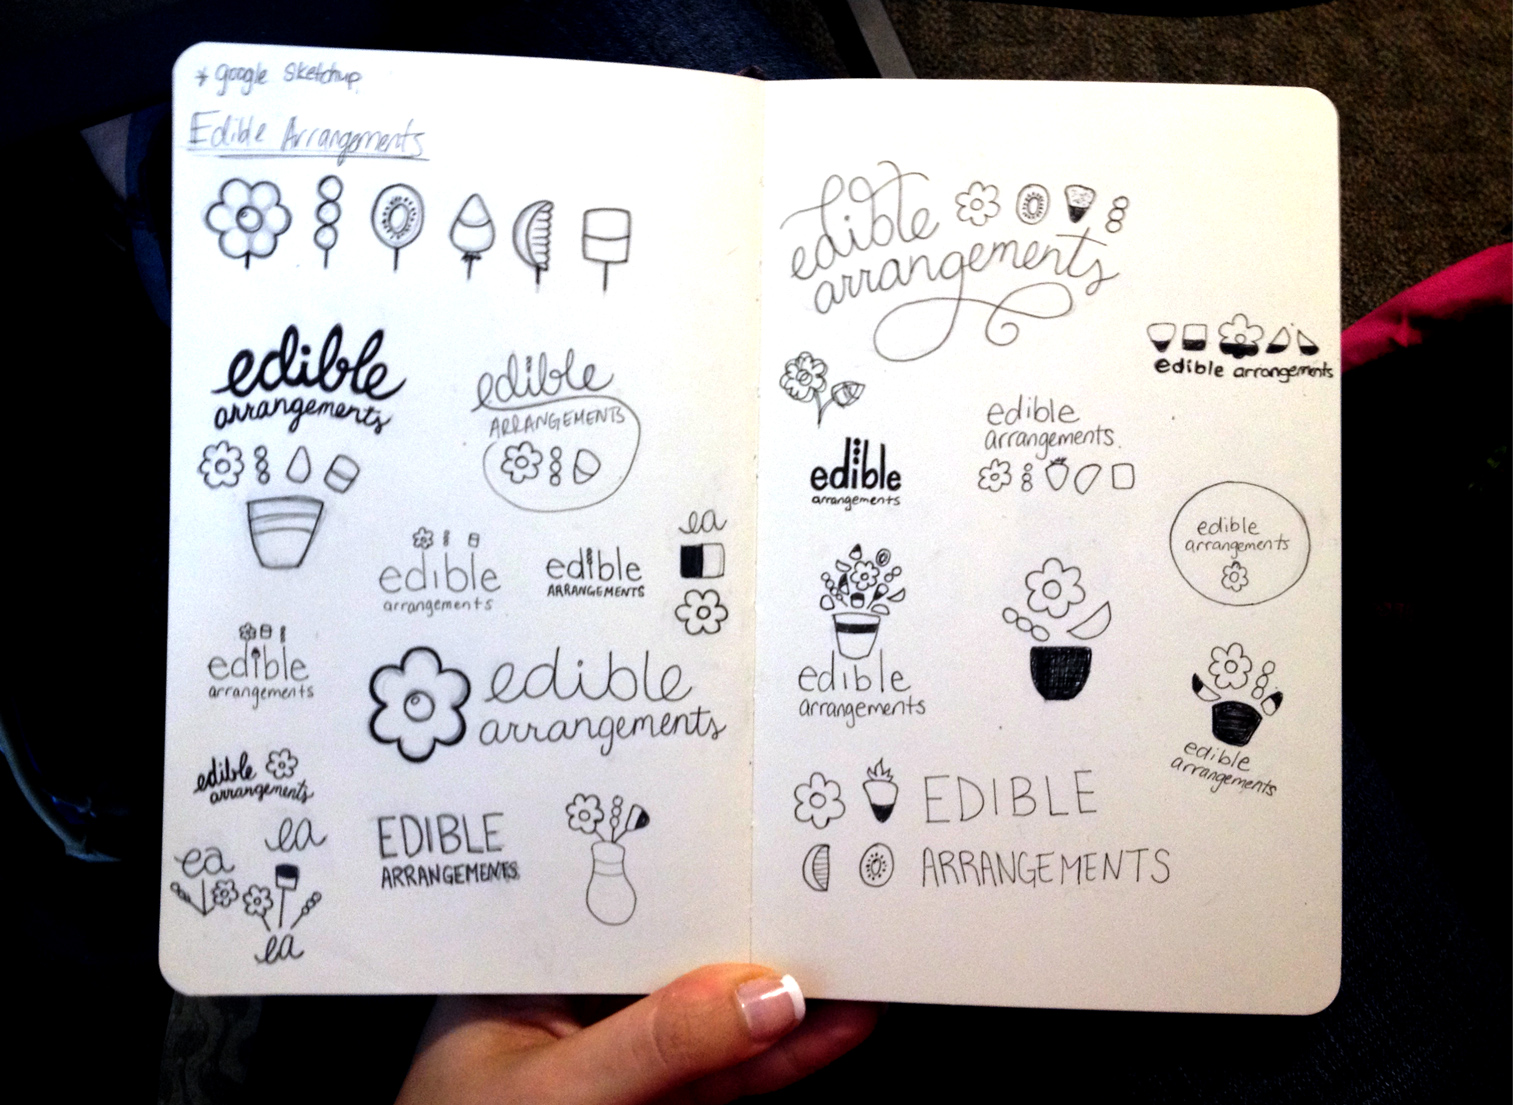 * google sketchup
Edible Arrangements
edible
arrangements
edible
ARRANGEMENTS
edible
arrangements
edible
ARRANGEMENTS
ea
edible
arrangements
edible
arrangements
edible
arrangements
ea
ea
ea
EDIBLE
ARRANGEMENTS
edible
arrangements
edible arrangements
edible
arrangements.
edible
arrangements
edible
arrangements
edible
arrangements
edible
arrangements
EDIBLE
ARRANGEMENTS